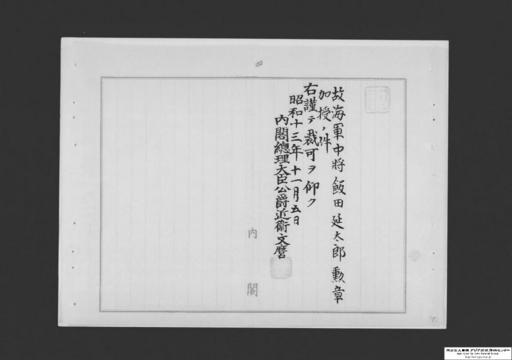 故海軍中將飯田延太郎勲章
加授ノ件
右謹テ裁可ヲ仰ク
昭和十三年十一月五日
内閣總理大臣公爵近衛文麿
内閣